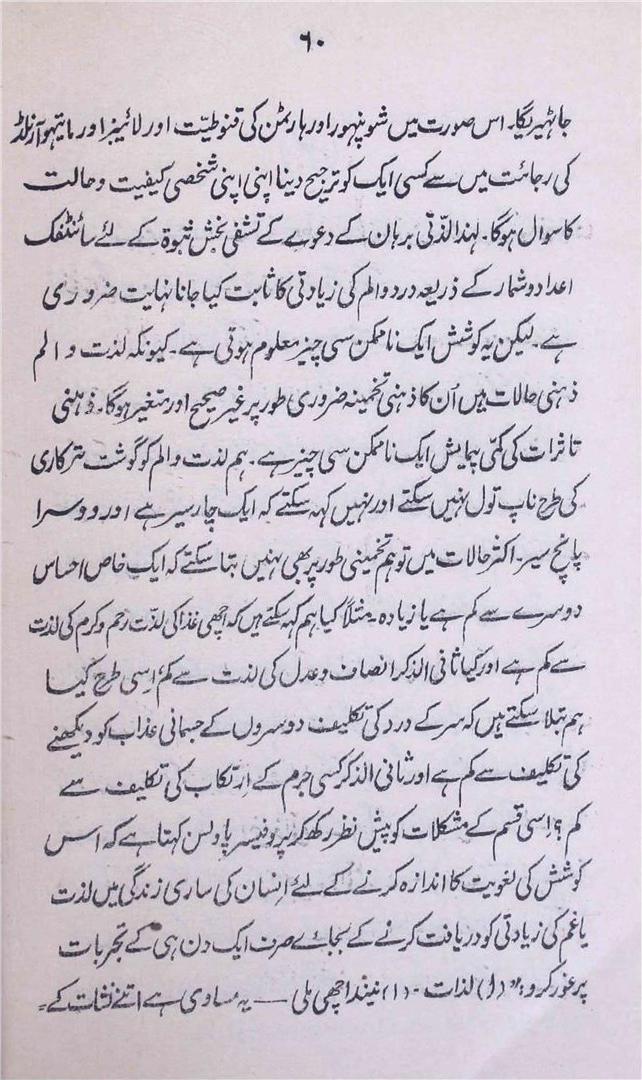 ٦٠
جا ٹھیریگا۔ اس صورت میں شوپنہور اور ہارٹمن کی قنوطیّت اور لائبنیز اور ماتیھو آرنلڈ
کی رجائت میں سے کسی ایک کو ترجیح دینا اپنی اپنی شخصی کیفیت و حالت
کا سوال ہوگا۔ لہٰذا لذّتی برہان کے دعوے کے تشفی بخش ثبوۃ کے لئے سائنٹفک
اعداد و شمار کے ذریعہ درد و الم کی زیادتی کا ثابت کیا جانا نہایت ضروری
ہے۔ لیکن یہ کوشش ایک ناممکن سی چیز معلوم ہوتی ہے۔ کیونکہ لذت و الم
ذہنی حالات ہیں اُن کا ذہنی تخمینہ ضروری طور پر غیر صحیح اور متغیر ہوگا۔ ذہنی
تاثرات کی کمّی پیمایش ایک ناممکن سی چیز ہے۔ ہم لذت و الم کو گوشت ترکاری
کی طرح ناپ تول نہیں سکتے اور نہیں کہہ سکتے کہ ایک چار سیر ہے اور دوسرا
پانچ سیر۔ اکثر حالات میں تو ہم تخمینی طور پر بھی نہیں بتا سکتے کہ ایک خاص احساس
دوسرے سے کم ہے یا زیادہ۔ مثلاً کیا ہم کہہ سکتے ہیں کہ اچھی غذا کی لذّت رحم و کرم کی لذت
سے کم ہے اور کیا ثانی الذکر انصاف و عدل کی لذت سے کم؟ اِسی طرح کیا
ہم بتلا سکتے ہیں کہ سر کے درد کی تکلیف دوسروں کے جسمانی عذاب کو دیکھنے
کی تکلیف سے کم ہے اور ثانی الذکر کسی جرم کے اِرتکاب کی تکلیف سے
کم؟ اِسی قسم کے مشکلات کو پیش نظر رکھ کر پروفیسر پاولسن کہتا ہے کہ اس
کوشش کی لغویت کا اندازہ کرنے کے لئے اِنسان کی ساری زندگی میں لذت
یا غم کی زیادتی کو دریافت کرنے کے بجائے صرف ایک دن ہی کے تجربات
پر غور کرو:" (ا) لذات۔ (۱) نیند اچھی ملی — یہ مساوی ہے اتنے نشات کے=